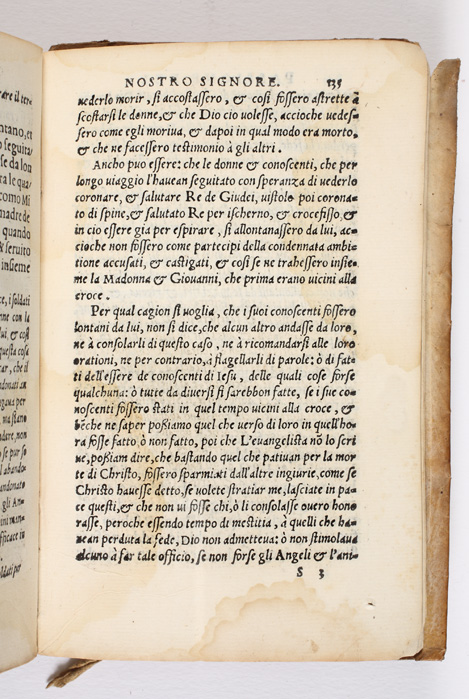 are il ter-
ntano, et
seguita
se da lon
ta le qua
como Mi
madre de
quando
& seruito
insieme
ce, i soldati
con la
lui, & cosi
questa cosa
ar, che il
donati an
NOSTRO SIGNORE. 135
uederlo morir, si accostassero, & cosi fossero astrette à
scostarsi le donne, & che Dio cio uolesse, accioche uedes-
sero come egli moriua, & dapoi in qual modo era morto,
& che ne facessero testimonio à gli altri.
Ancho puo essere: che le donne & conoscenti, che per
longo viaggio l'hauean seguitato con speranza di uederlo
coronare, & salutare Re de Giudei, uistolo poi corona-
to di spine, & salutato Re per ischerno, & crocefisso, &
in cio essere gia per espirare, si allontanassero da lui, ac-
cioche non fossero come partecipi della condennata ambi-
tione accusati, & castigati, & cosi se ne trahessero insie-
me la Madonna & Giouanni, che prima erano uicini alla
croce.
Per qual cagion si uoglia, che i suoi conoscenti fossero
lontani da lui, non si dice, che alcun altro andasse da loro,
ne à consolarli di questo caso, ne à ricomandarsi alle loro
orationi, ne per contrario, à flagellarli di parole: ò di fat-
ti dell'essere de conoscenti di Iesù, delle quali cose forse
qualchuna: ò tutte da diuersi si sarebbon fatte, se i sue co-
noscenti fossero stati in quel tempo uicini alla croce, &
bẽche ne saper possiamo quel che uerso di loro in quell'ho
ra fosse fatto ò non fatto, poi che L'euangelista nõ lo scri
ue, possiam dire, che bastando quel che patiuan per la mor
te di Christo, fossero sparmiati dall'altre ingiurie, come se
Christo hauesse detto, se uolete stratiar me, lasciate in pa-
ce questi, & che non ui fosse chi, ò li consolasse ouero hono
rasse, peroche essendo tempo di mestitia, à quelli che ha-
uean perduta la fede, Dio non admetteua: ò non stimolaua
alcuno à far tale officio, se non forse gli Angeli & l'ani-
S 3